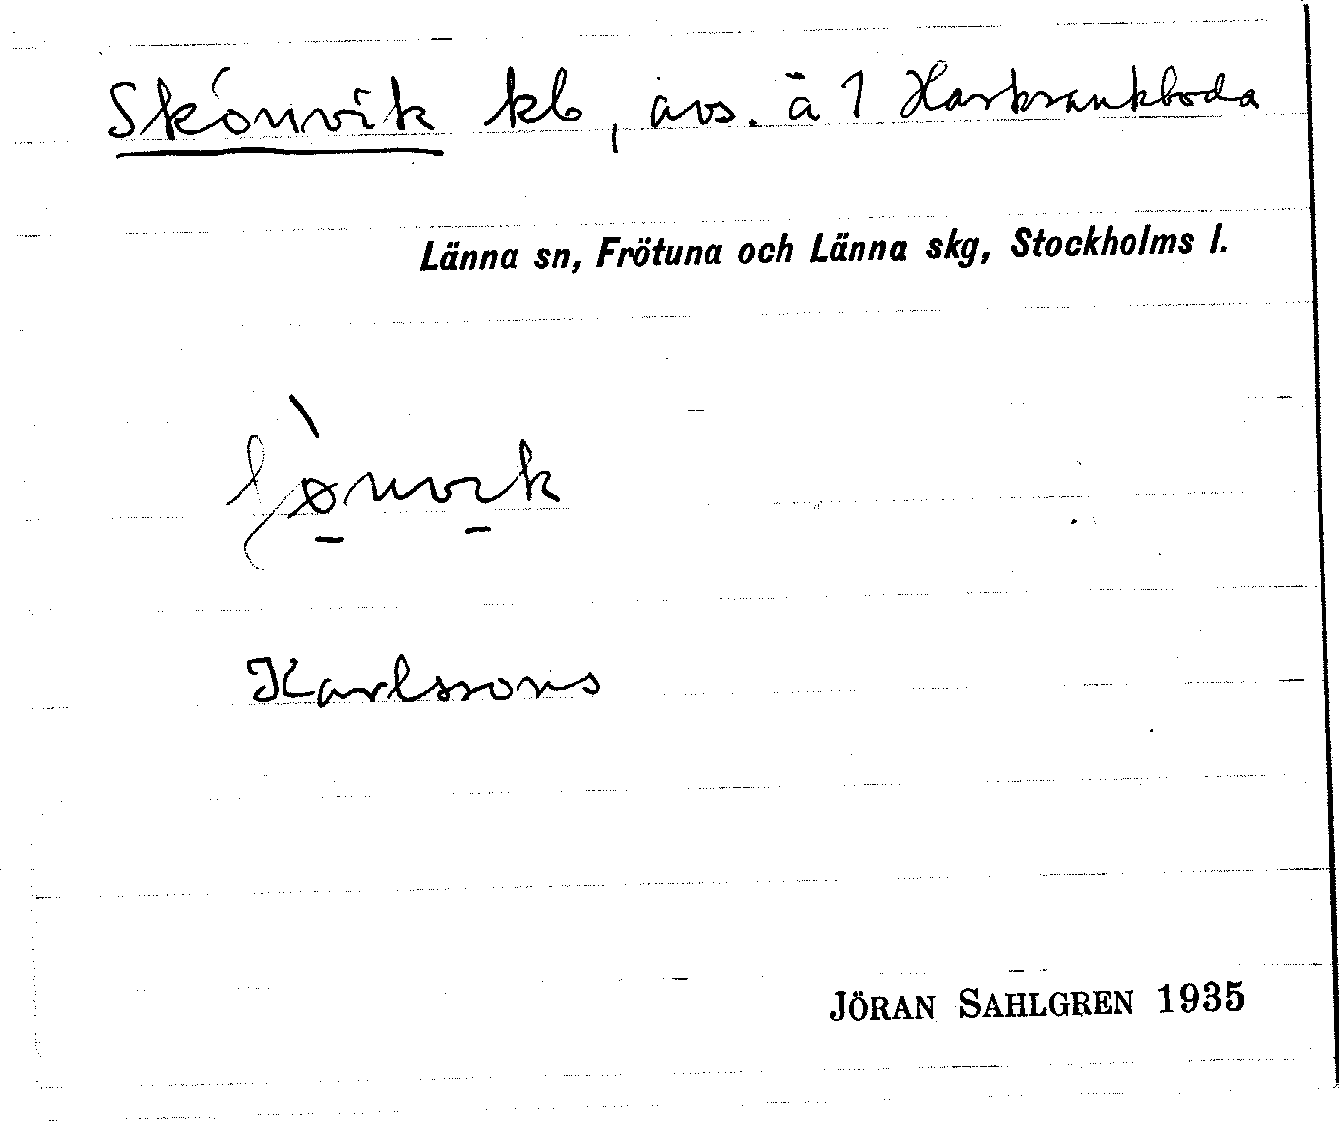 Skönvik kb, avs. å 1 Harkrankboda
Länna sn, Frötuna och Länna skg, Stockholms l.
Karlssons
JÖRAN SAHLGREN 1935